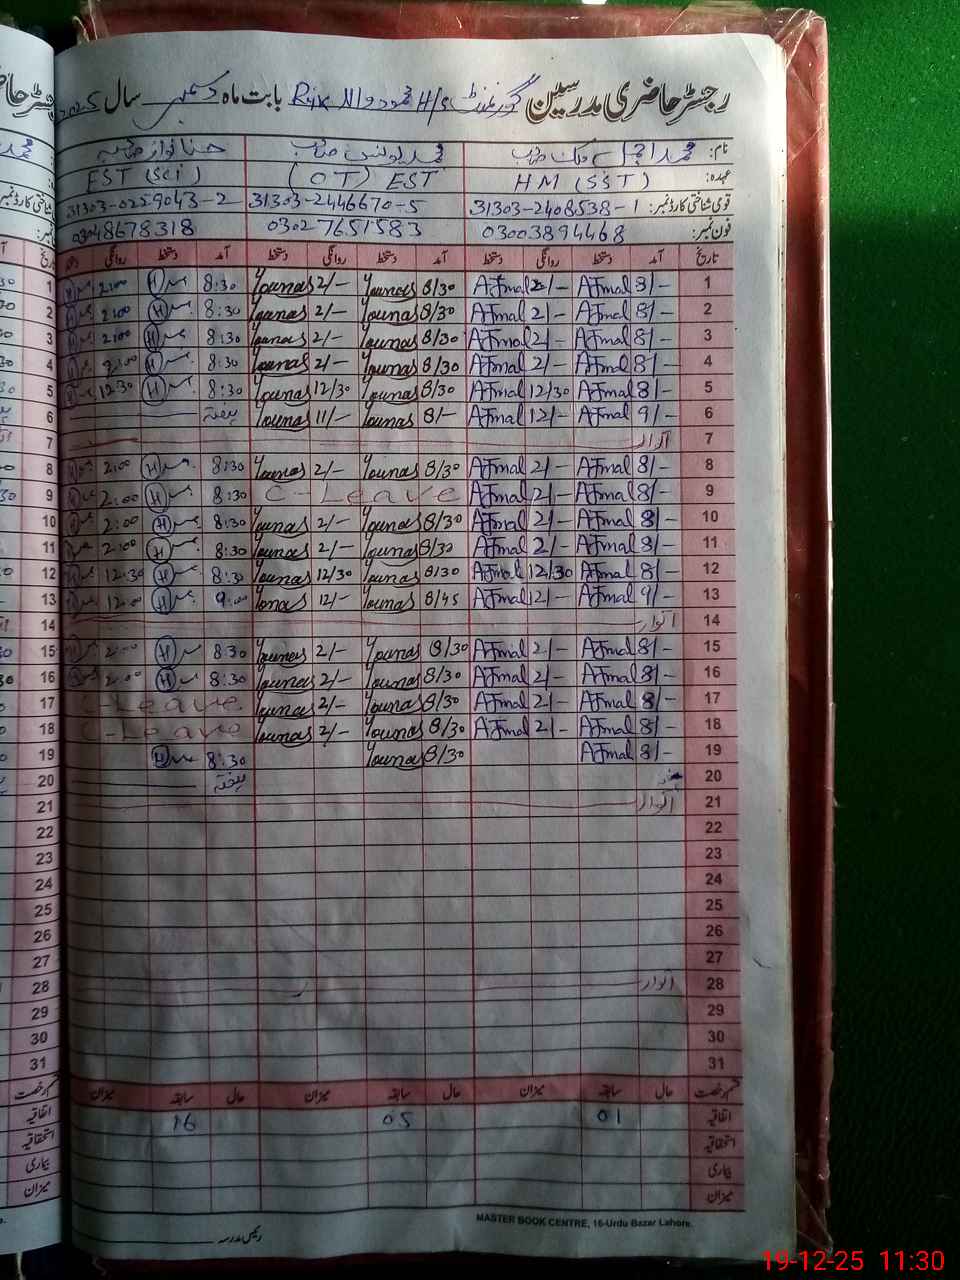 رجسٹر حاضری مدرسین گورنمنٹ H/S محمود والا RYK بابت ماہ دسمبر سال 2025
نام: محمد اجمل ملک صاحب محمد یونس صاحب حنا نواز صاحبہ
عہدہ: HM (SST) (OT) EST EST (Sci)
قومی شناختی کارڈ نمبر: 31303-2408538-1 31303-2446670-5 31303-0259043-2
فون نمبر: 03003894468 03027651583 03048678318
تاریخ آمد دستخط روانگی دستخط آمد دستخط روانگی دستخط آمد دستخط روانگی
1 8/- Ajmal 2/- Ajmal 8/30 Younas 2/- Younas 8:30 H 2:00 H
2 8/- Ajmal 2/- Ajmal 8/30 Younas 2/- Younas 8:30 H 2:00 H
3 8/- Ajmal 2/- Ajmal 8/30 Younas 2/- Younas 8:30 H 2:00 H
4 8/- Ajmal 2/- Ajmal 8/30 Younas 2/- Younas 8:30 H 2:00 H
5 8/- Ajmal 12/30 Ajmal 8/30 Younas 12/30 Younas 8:30 H 12:30 H
6 9/- Ajmal 12/- Ajmal 8/- Younas 11/- Younas ہفتہ
7 اتوار
8 8/- Ajmal 2/- Ajmal 8/30 Younas 2/- Younas 8:30 H 2:00 H
9 8/- Ajmal 2/- Ajmal C-Leave 8:30 H 2:00 H
10 8/- Ajmal 2/- Ajmal 8/30 Younas 2/- Younas 8:30 H 2:00 H
11 8/- Ajmal 2/- Ajmal 8/30 Younas 2/- Younas 8:30 H 2:00 H
12 8/- Ajmal 12/30 Ajmal 8/30 Younas 12/30 Younas 8:30 H 12:30 H
13 9/- Ajmal 12/- Ajmal 8/45 Younas 12/- Younas 9:00 H 12:00 H
14 اتوار
15 8/- Ajmal 2/- Ajmal 8/30 Younas 2/- Younas 8:30 H 2:00 H
16 8/- Ajmal 2/- Ajmal 8/30 Younas 2/- Younas 8:30 H 2:00 H
17 8/- Ajmal 2/- Ajmal 8/30 Younas 2/- Younas C-Leave
18 8/- Ajmal 2/- Ajmal 8/30 Younas 2/- Younas C-Leave
19 8/- Ajmal 8/30 Younas 8:30 H
20 ہفتہ
21 اتوار
22
23
24
25
26
27
28 اتوار
29
30
31
قسم رخصت حال سابقہ میزان حال سابقہ میزان حال سابقہ میزان
اتفاقیہ 01 05 16
استحقاقیہ
بیماری
میزان
MASTER BOOK CENTRE, 16-Urdu Bazar Lahore.
رئیس مدرسہ
19-12-25 11:30